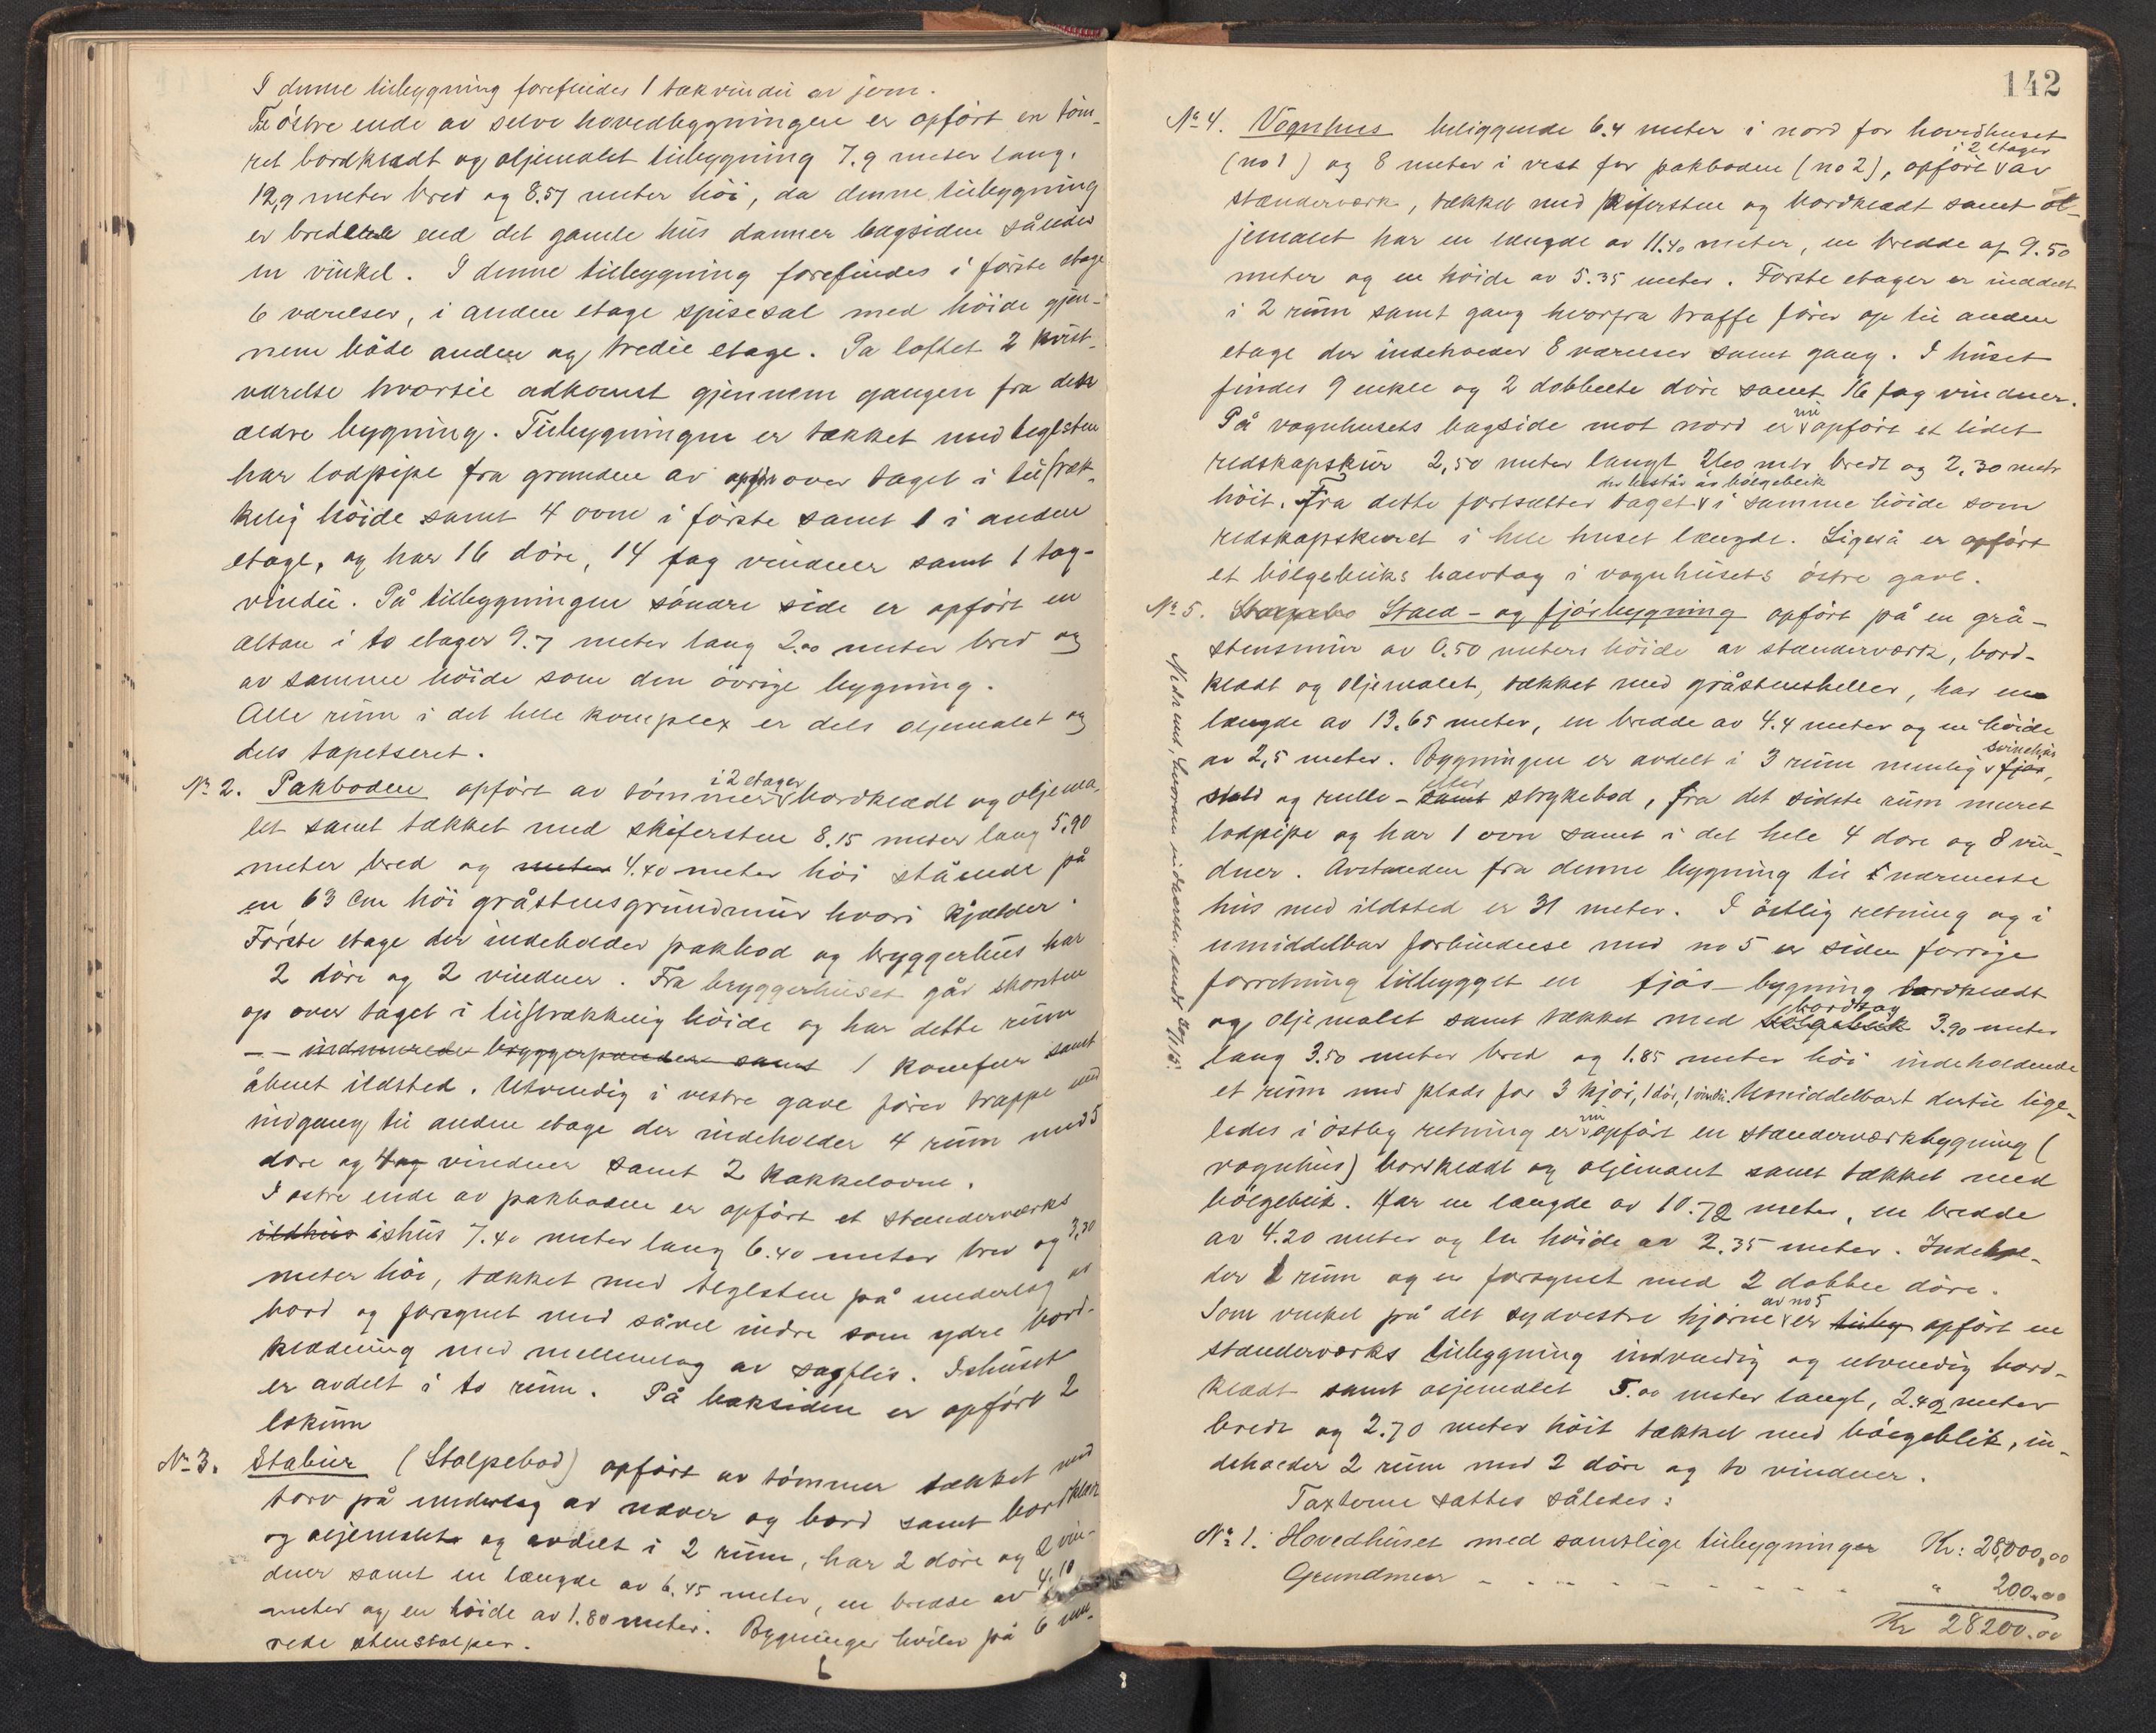 I denne tilbygning forefindes 1 takvindu av jern.
Til østre ende av selve hovedbygningen er opført en tøm-
ret bordklædt og oljemalet tilbygning 7.9 meter lang,
12,9 meter bred og 8.57 meter høi, da denne tilbygning
er bredere end det gamle hus danner bagsiden således
en vinkel. I denne tilbygning forefindes i første etage
6 værelser, i anden etage spisesal med høide gjen-
nem både anden og tredie etage. På loftet 2 kvist-
værelse hvortil adkomst gjennem gangen fra den
ældre bygning. Tilbygningen er tækket med teglsten
har lodpipe fra grunden av op over taget i tilstræk-
kelig høide samt 4 ovne i første samt 1 i anden
etage, og har 16 døre, 14 fag vinduer samt 1 tag-
vindu. På tilbygningen søndre side er opført en
altan i to etager 9.7 meter lang 2.00 meter bred og
av samme høide som den øvrige bygning.
Alle rum i det hele komplex er dels oljemalet og
dels tapetseret.
No 2. Pakboden opført av tømmer i 2 etager bordklædt og oljema-
let samt tækket med skifersten 8.15 meter lang 5,90
meter bred og meter 4.40 meter høi stående på
en 63 cm høi gråstensgrundmur hvori kjælder.
Første etage der indeholder pakbod og bryggerhus har
2 døre og 2 vinduer. Fra bryggerhuset går skorsten
op over taget i tilstrækkelig høide og har dette rum
-- indmurede bryggerpander samt 1 komfur samt
åbent ildsted. Utvendig i vestre gavl fører trappe med
indgang til anden etage der indeholder 4 rum med 5
døre og 4 fag vinduer samt 2 kakkelovne.
I østre ende av pakboden er opført et stenderverks
ildhus ishus 7.40 meter lang 6.40 meter bred og 3,30
meter høi, tækket med teglsten på underlag av
bord og forsynet med såvel indre som ydre bord-
klædning med mellemlag av sagflis. Ishuset
er avdelt i to rum. På baksiden er opført 2
lokum
No 3. Stabur (Stolpebod) opført av tømmer tækket med
torv på underlag av næver og bord samt bordklædt
og oljemalet og avdelt i 2 rum, har 2 døre og 2 vin-
duer samt en længde av 6.45 meter, en bredde av 4,10
meter og en høide av 1.80 meter. Bygninger hviler på 6 mu-
rede stenstolper.
142
No 4. Vognhus beliggende 6.4 meter i nord for hovedhuset
(no 1) og 8 meter i vest for pakboden (no 2), opført i 2 etager av
stænderværk, tækket med skifersten og bordklædt samt ol-
jemalet har en længde av 11.40 meter, en bredde af 9.50
meter og en høide av 5.35 meter. Første etager er inddelt
i 2 rum samt gang hvorfra trappe fører op til anden
etage der indeholder 8 værelser samt gang. I huset
findes 9 enkle og 2 dobbelte døre samt 16 fag vinduer.
På vognhusets bagside mot nord er nu opført et lidet
redskapskur 2,50 meter langt 2,60 mtr. bredt og 2,30 metr
høit. Fra dette fortsætter taget der består av bølgeblik i samme høide som
redskapskuret i hele huset længde. Ligeså er opført
et bølgebliks halvtag i vognhusets østre gavl.
No 5. Stolpebo Stald- og fjøsbygning opført på en grå-
stensmur av 0.50 meters høide av stænderværk, bord-
klædt og oljemalet, tækket med gråstensheller, har en
længde av 13.65 meter, en bredde av 4.4 meter og en høide
av 2,5 meter. Bygningen er avdelt i 3 rum nemlig svinehus fjøs,
stald og rulle- eller samt strykebod, fra det sidste rum muret
lodpipe og har 1 ovn samt i det hele 4 døre og 8 vin-
duer. Avstanden fra denne bygning til nærmeste
hus med ildsted er 31 meter. I østlig retning og i
umiddelbar forbindelse med no 5 er siden forrige
forretning tilbygget en fjøs-bygning bordklædt
og oljemalet samt tækket med bølgeblik bordtag 3.90 meter
lang 3.50 meter bred og 1.85 meter høi indeholdende
et rum med plads for 3 kjør, 1 dør, 1 vindu. Umiddelbart dertil lige-
ledes i østlig retning er nu opført en stænderværkbygning (
vognhus) bordklædt og oljemalt samt tækket med
bølgeblik. Har en længde av 10.72 meter, en bredde
av 4.20 meter og en høide av 2.35 meter. Indehol-
der 1 rum og er forsynet med 2 dobble døre.
Som vinkel på det sydvestre hjørne av no 5 er tilby opført en
stænderværks tilbygning indvendig og utvendig bord-
klædt samt oljemalet 5.00 meter langt, 2.42 meter
bredt og 2.70 meter høit tækket med bølgeblik, in-
deholder 2 rum med 2 døre og to vinduer.
Taxterne sattes således:
No 1. Hovedhuset med samtlige tilbygninger Kr: 28,000,00
Grundmur - - - - - - - - - " 200.00
Kr 28200.00